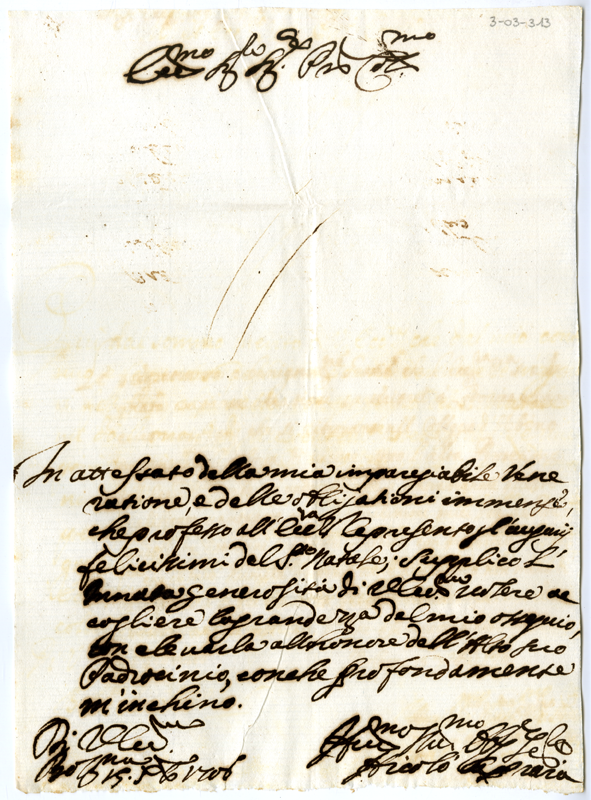 3-03-313
Ecc.mo Sig.re Sig.re Pron Col.mo
In attessato della mia impareggiabile Vene
ratione, e delle obligationi immense,
che professo all'Ecc.za V. le presento gl'augurij
felicissimi del S.to Natale, Supplico L'
Innata generosità di V. Ecc.za volere ac
cogliere la grandezza del mio ossequio,
con elevarla all'honore dell'Alto suo
Padrocinio, con che profondamente
m'inchino.
Di V. Ecc.za
Roma 15. Xbre 1706
Hum.mo Dev.mo Obl.mo Se.re
Nicolò